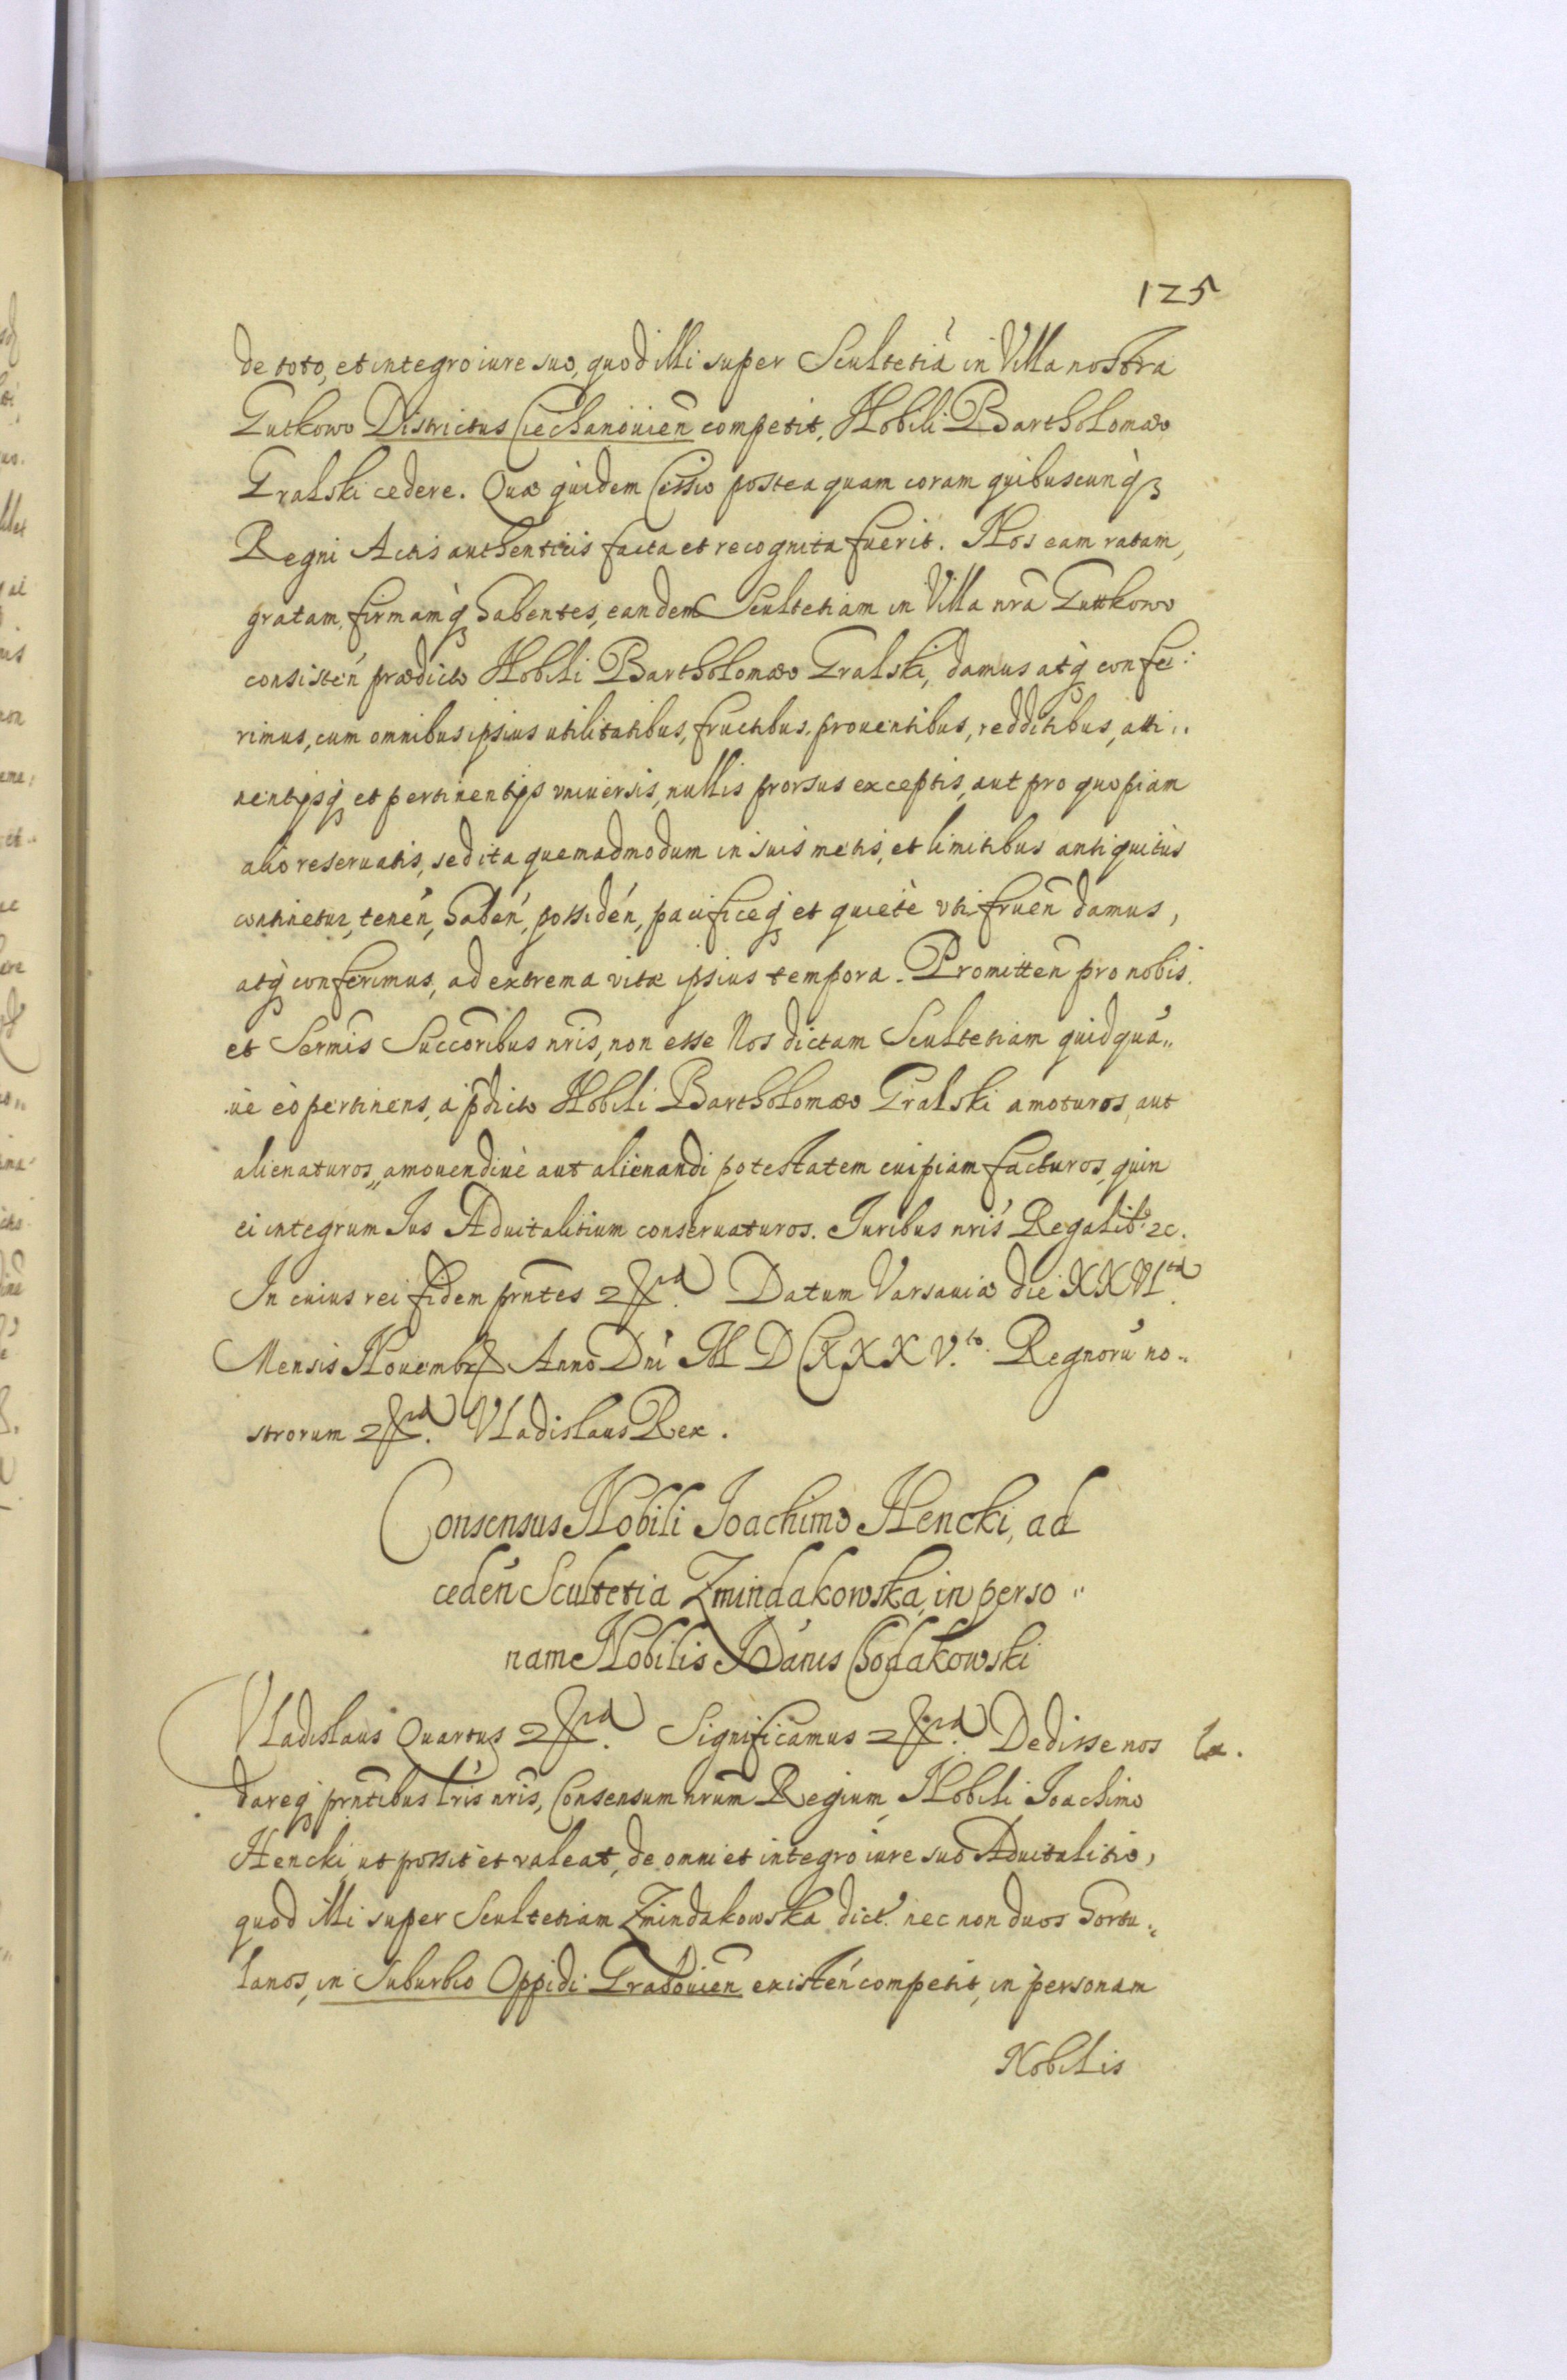 125
de toto, et integro iure suo, quod illi super Scultetiã in Villa nostra
Gutkowo Districtus Ciechanouien̄ competit, Nobili Bartholomæo
Gralski cedere. Quæ quidem Cessio postea quam coram quibuscunq3
Regni Actis authenticis facta et recognita fuerit. Nos eam ratam,
gratam, firmamq3 habentes, eandem Scultetiam in Villa nr̄a Guttkowo
consisten̄ prædicto Nobili Bartholomæo Gralski, damus atq3 confe:
rimus, cum omnibus ipsius utilitatibus, fructibus, prouentibus, redditibus, atti„
nentijsq3 et pertinentijs vniuersis, nullis prorsus exceptis, aut pro quopiam
alio reseruatis, sed ita quemadmodum in suis metis, et limitibus antiquitùs
continetur, tenen̄, haben̄, possiden̄, pacificeq3 et quietè vti fruen̄ damus,
atq3 conferimus, ad extrema vitæ ipsius tempora. Promitten̄ pro nobis
et Sermis̄ Succoribus̄ nris̄, non esse Nos dictam Scultetiam quidquã„
uè eò pertinens, à p̄dicto Nobili Bartholomæo Gralski amoturos, aut
alienaturos, amouendiuè aut alienandi potestatem cuipiam facturos, quin
ei integrum Ius Aduitalitium conseruaturos. Iuribus nris̄ Regalib9 2c.
In cuius rei fidem prn̄tes 2c Datum Varsauiæ die XXVI ta
Mensis Nouembr Anno Dni̅ M D CXXXV.to Regnorũ no„
strorum 2c. Vladislaus Rex.
Consensus Nobili Joachimo Hencki, ad
ceden̄ Scultetia Zmindakowska, in perso„
nam Nobilis Ioañis Chodakowski
Vladislaus Quartus 2c. Significamus 2c. Dedisse nos
dareq3 prn̄tibus lr̄is nr̄is, Consensum nrum̄ Regium, Nobili Joachimo
Hencki, ut possit et valeat, de omni et integro iure suo Aduitalitio,
quod illi super Scultetiam Zmindakowska dict. nec non duos hortu„
lanos, in Suburbio Oppidi Grabouien̄ existen̄ competit, in personam
Nobilis